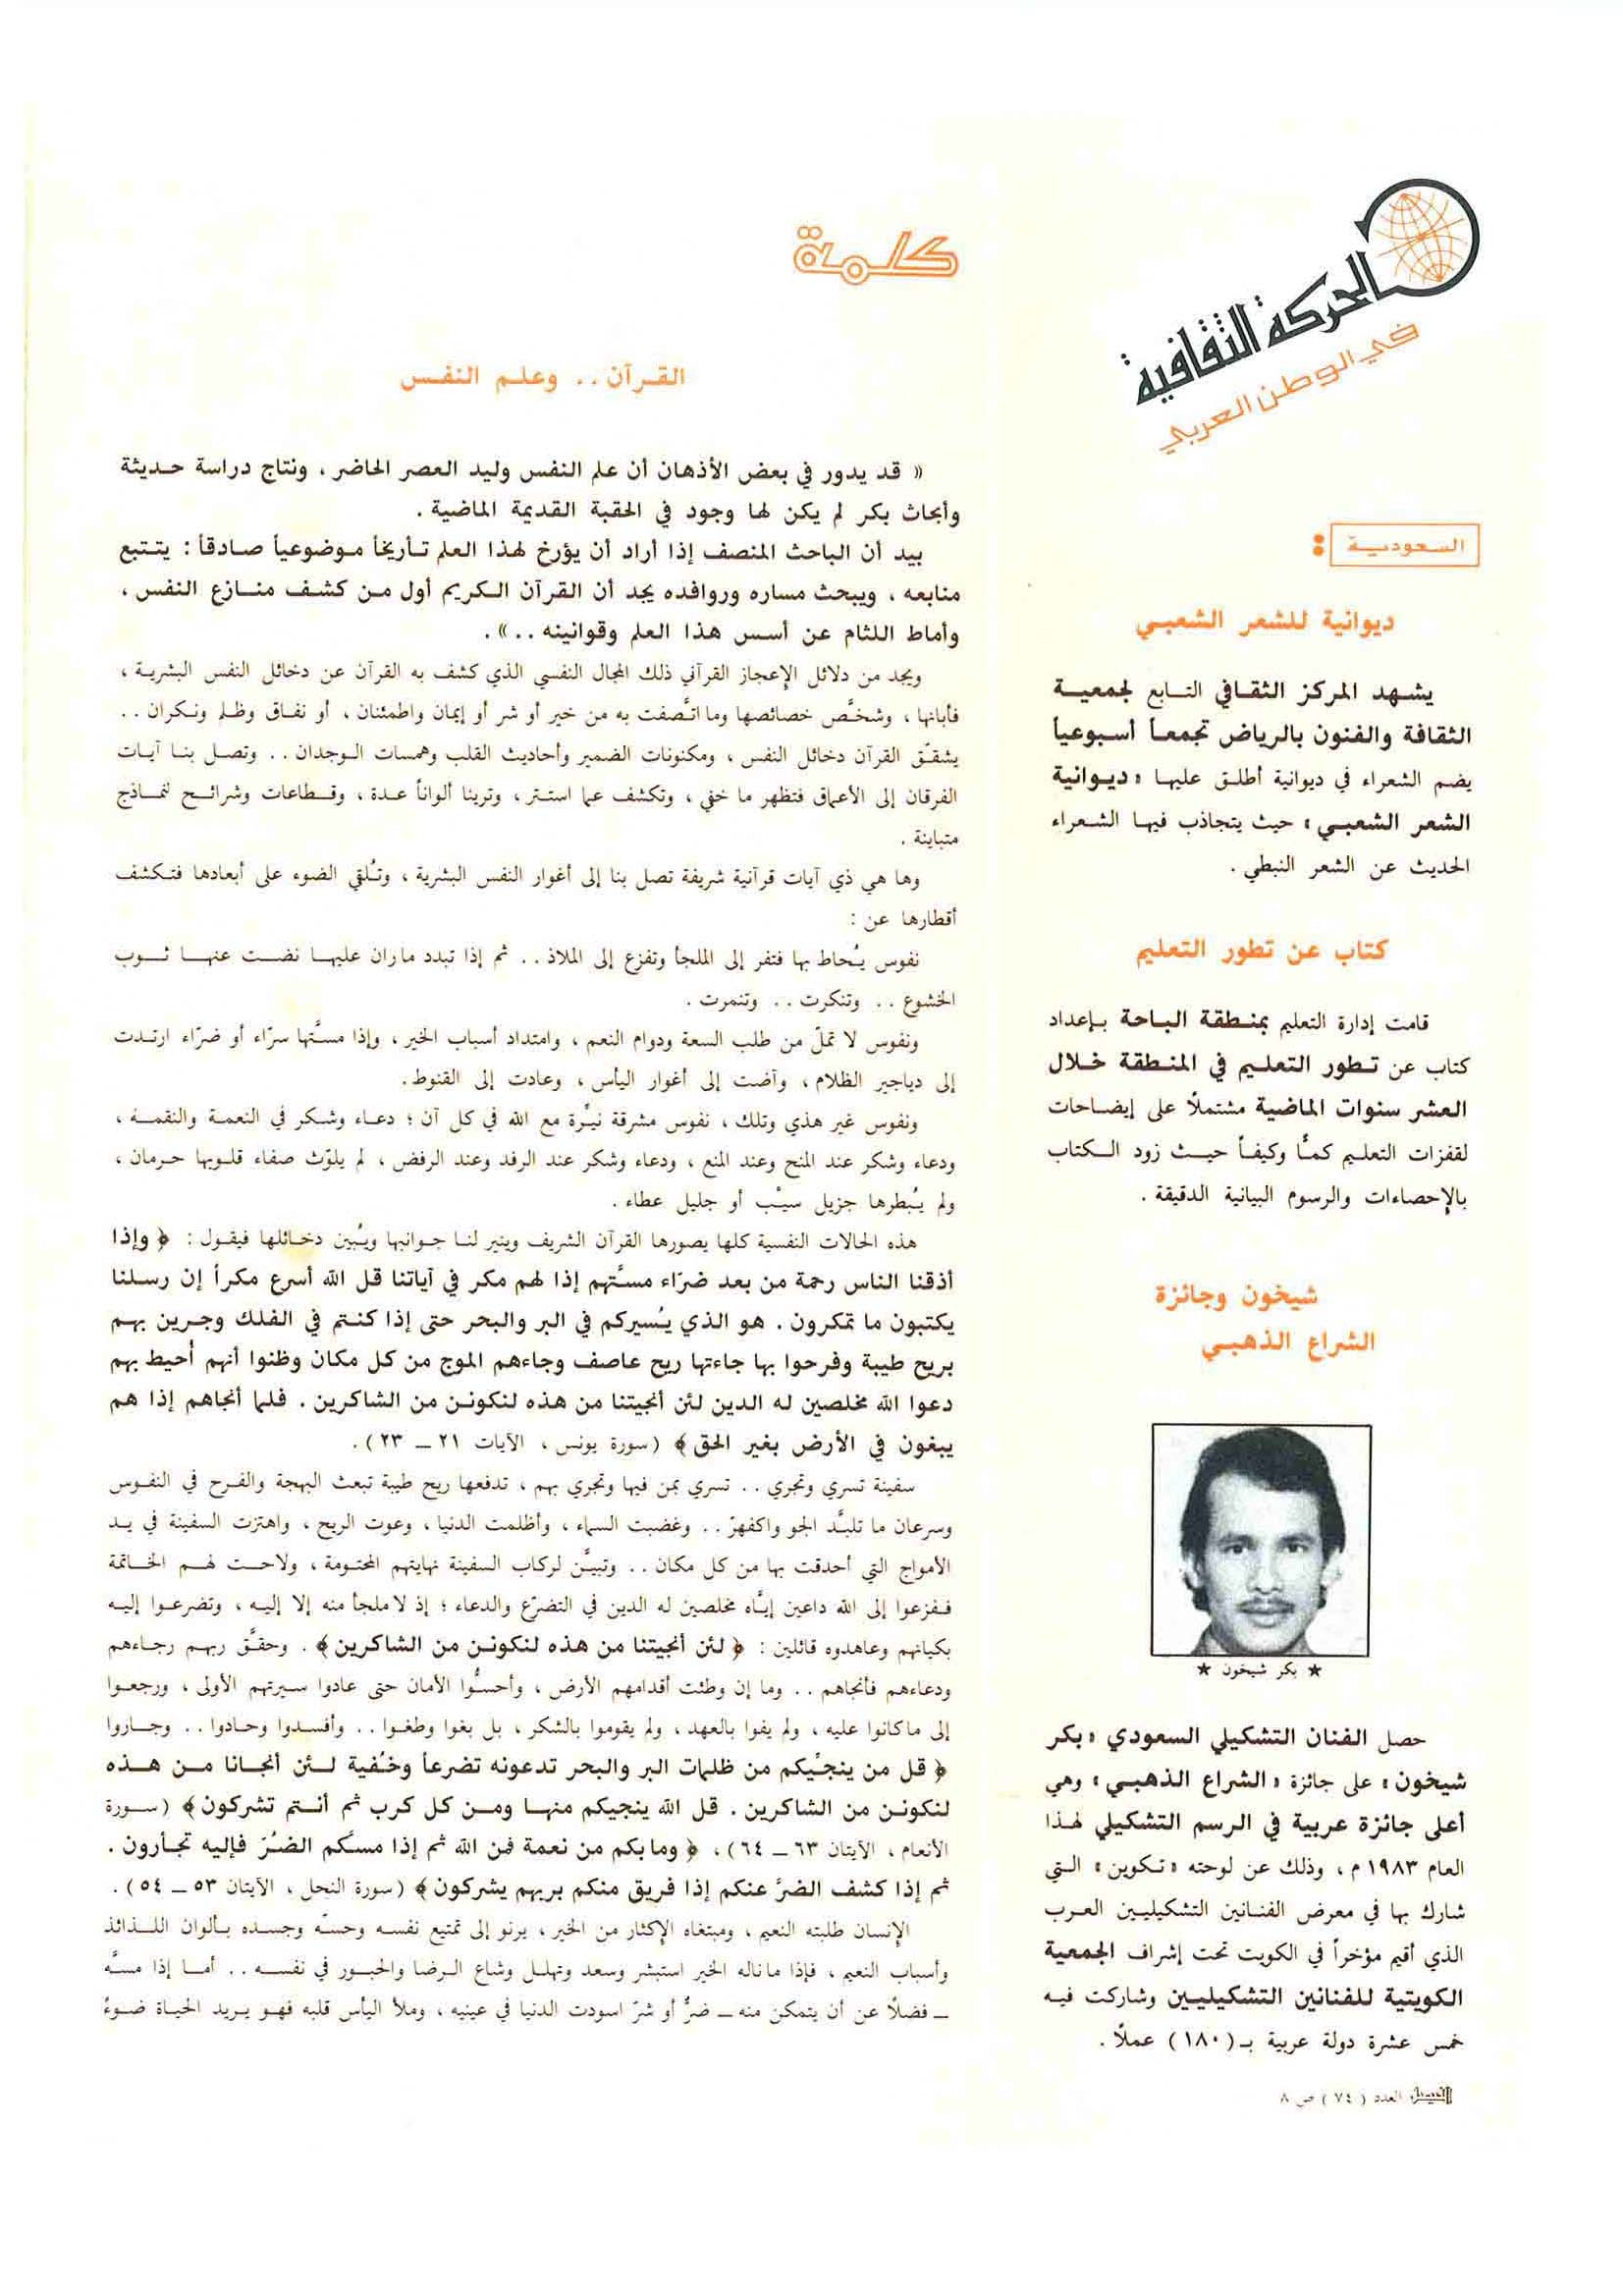 الحركة الثقافية
في الوطن العربي
السعودية :
ديوانية للشعر الشعبي
يشهد المركز الثقافي التابع لجمعية
الثقافة والفنون بالرياض تجمعاً أسبوعياً
يضم الشعراء في ديوانية أطلق عليها «ديوانية
الشعر الشعبي» حيث يتجاذب فيها الشعراء
الحديث عن الشعر النبطي .
كتاب عن تطور التعليم
قامت إدارة التعليم بمنطقة الباحة بإعداد
كتاب عن تطور التعليم في المنطقة خلال
العشر سنوات الماضية مشتملاً على إيضاحات
لقفزات التعليم كمًّا وكيفاً حيث زود الكتاب
بالإحصاءات والرسوم البيانية الدقيقة .
شيخون وجائزة
الشراع الذهبي
★ بكر شيخون ★
حصل الفنان التشكيلي السعودي «بكر
شيخون» على جائزة «الشراع الذهبي» وهي
أعلى جائزة عربية في الرسم التشكيلي لهذا
العام ١٩٨٣ م ، وذلك عن لوحته «تكوين» التي
شارك بها في معرض الفنانين التشكيليين العرب
الذي أقيم مؤخراً في الكويت تحت إشراف الجمعية
الكويتية للفنانين التشكيليين وشاركت فيه
خمس عشرة دولة عربية بـ(١٨٠) عملاً .
كلمة
القرآن .. وعلم النفس
« قد يدور في بعض الأذهان أن علم النفس وليد العصر الحاضر ، ونتاج دراسة حديثة
وأبحاث بكر لم يكن لها وجود في الحقبة القديمة الماضية .
بيد أن الباحث المنصف إذا أراد أن يؤرخ لهذا العلم تأريخاً موضوعياً صادقاً : يتتبع
منابعه ، ويبحث مساره وروافده يجد أن القرآن الكريم أول من كشف منازع النفس ،
وأماط اللثام عن أسس هذا العلم وقوانينه ..» .
ويجد من دلائل الإعجاز القرآني ذلك المجال النفسي الذي كشف به القرآن عن دخائل النفس البشرية ،
فأبانها ، وشخَّص خصائصها وما اتَّصفت به من خير أو شر أو إيمان واطمئنان ، أو نفاق وظلم ونكران ..
يشقّق القرآن دخائل النفس ، ومكنونات الضمير وأحاديث القلب وهمسات الوجدان .. وتصل بنا آيات
الفرقان إلى الأعماق فتظهر ما خفي ، وتكشف عما استتر ، وترينا ألواناً عدة ، وقطاعات وشرائح لنماذج
متباينة .
وها هي ذي آيات قرآنية شريفة تصل بنا إلى أغوار النفس البشرية ، وتُلقي الضوء على أبعادها فتكشف
أقطارها عن :
نفوس يُحاط بها فتفر إلى الملجأ وتفزع إلى الملاذ .. ثم إذا تبدد ماران عليها نضت عنها ثوب
الخشوع .. وتنكرت .. وتنمرت .
ونفوس لا تملّ من طلب السعة ودوام النعم ، وامتداد أسباب الخير ، وإذا مسَّتها سرّاء أو ضرّاء ارتدت
إلى دياجير الظلام ، وآضت إلى أغوار اليأس ، وعادت إلى القنوط .
ونفوس غير هذي وتلك ، نفوس مشرقة نيِّرة مع الله في كل آن ؛ دعاء وشكر في النعمة والنقمة ،
ودعاء وشكر عند المنح وعند المنع ، ودعاء وشكر عند الرفد وعند الرفض ، لم يلوّث صفاء قلوبها حرمان ،
ولم يُبطرها جزيل سيْب أو جليل عطاء .
هذه الحالات النفسية كلها يصورها القرآن الشريف وينير لنا جوانبها ويُبين دخائلها فيقول : ﴿ وإذا
أذقنا الناس رحمة من بعد ضرّاء مسَّتهم إذا لهم مكر في آياتنا قل الله أسرع مكراً إن رسلنا
يكتبون ما تمكرون . هو الذي يُسيركم في البر والبحر حتى إذا كنتم في الفلك وجرين بهم
بريح طيبة وفرحوا بها جاءتها ريح عاصف وجاءهم الموج من كل مكان وظنوا أنهم أُحيط بهم
دعوا الله مخلصين له الدين لئن أنجيتنا من هذه لنكونن من الشاكرين . فلما أنجاهم إذا هم
يبغون في الأرض بغير الحق ﴾ (سورة يونس ، الآيات ٢١ – ٢٣) .
سفينة تسري وتجري .. تسري بمن فيها وتجري بهم ، تدفعها ريح طيبة تبعث البهجة والفرح في النفوس
وسرعان ما تلبَّد الجو واكفهرّ .. وغضبت السماء ، وأظلمت الدنيا ، وعوت الريح ، واهتزت السفينة في يد
الأمواج التي أحدقت بها من كل مكان .. وتبيَّن لركاب السفينة نهايتهم المحتومة ، ولاحت لهم الخاتمة
ففزعوا إلى الله داعين إيَّاه مخلصين له الدين في التضرّع والدعاء ؛ إذ لا ملجأ منه إلا إليه ، وتضرعوا إليه
بكيانهم وعاهدوه قائلين : ﴿ لئن أنجيتنا من هذه لنكونن من الشاكرين ﴾ . وحقَّق ربهم رجاءهم
ودعاءهم فأنجاهم .. وما إن وطئت أقدامهم الأرض ، وأحسُّوا الأمان حتى عادوا سيرتهم الأولى ، ورجعوا
إلى ما كانوا عليه ، ولم يفوا بالعهد ، ولم يقوموا بالشكر ، بل بغوا وطغوا .. وأفسدوا وحادوا .. وجاروا
﴿ قل من ينجيّكم من ظلمات البر والبحر تدعونه تضرعاً وخُفية لئن أنجانا من هذه
لنكونن من الشاكرين . قل الله ينجيكم منها ومن كل كرب ثم أنتم تشركون ﴾ (سورة
الأنعام ، الآيتان ٦٣ – ٦٤) ، ﴿ وما بكم من نعمة فمن الله ثم إذا مسكم الضُرّ فإليه تجأرون .
ثم إذا كشف الضرَّ عنكم إذا فريق منكم بربهم يشركون ﴾ (سورة النحل ، الآيتان ٥٣ – ٥٤) .
الإنسان طلبته النعيم ، ومبتغاه الإكثار من الخير ، يرنو إلى تمتيع نفسه وحسّه وجسده بألوان اللذائذ
وأسباب النعيم ، فإذا ما ناله الخير استبشر وسعد وتهلل وشاع الرضا والحبور في نفسه .. أما إذا مسَّه
– فضلاً عن أن يتمكن منه – ضرٌّ أو شرّ اسودت الدنيا في عينيه ، وملأ اليأس قلبه فهو يريد الحياة ضوءُ
الفيصل العدد (٧٤) ص ٨